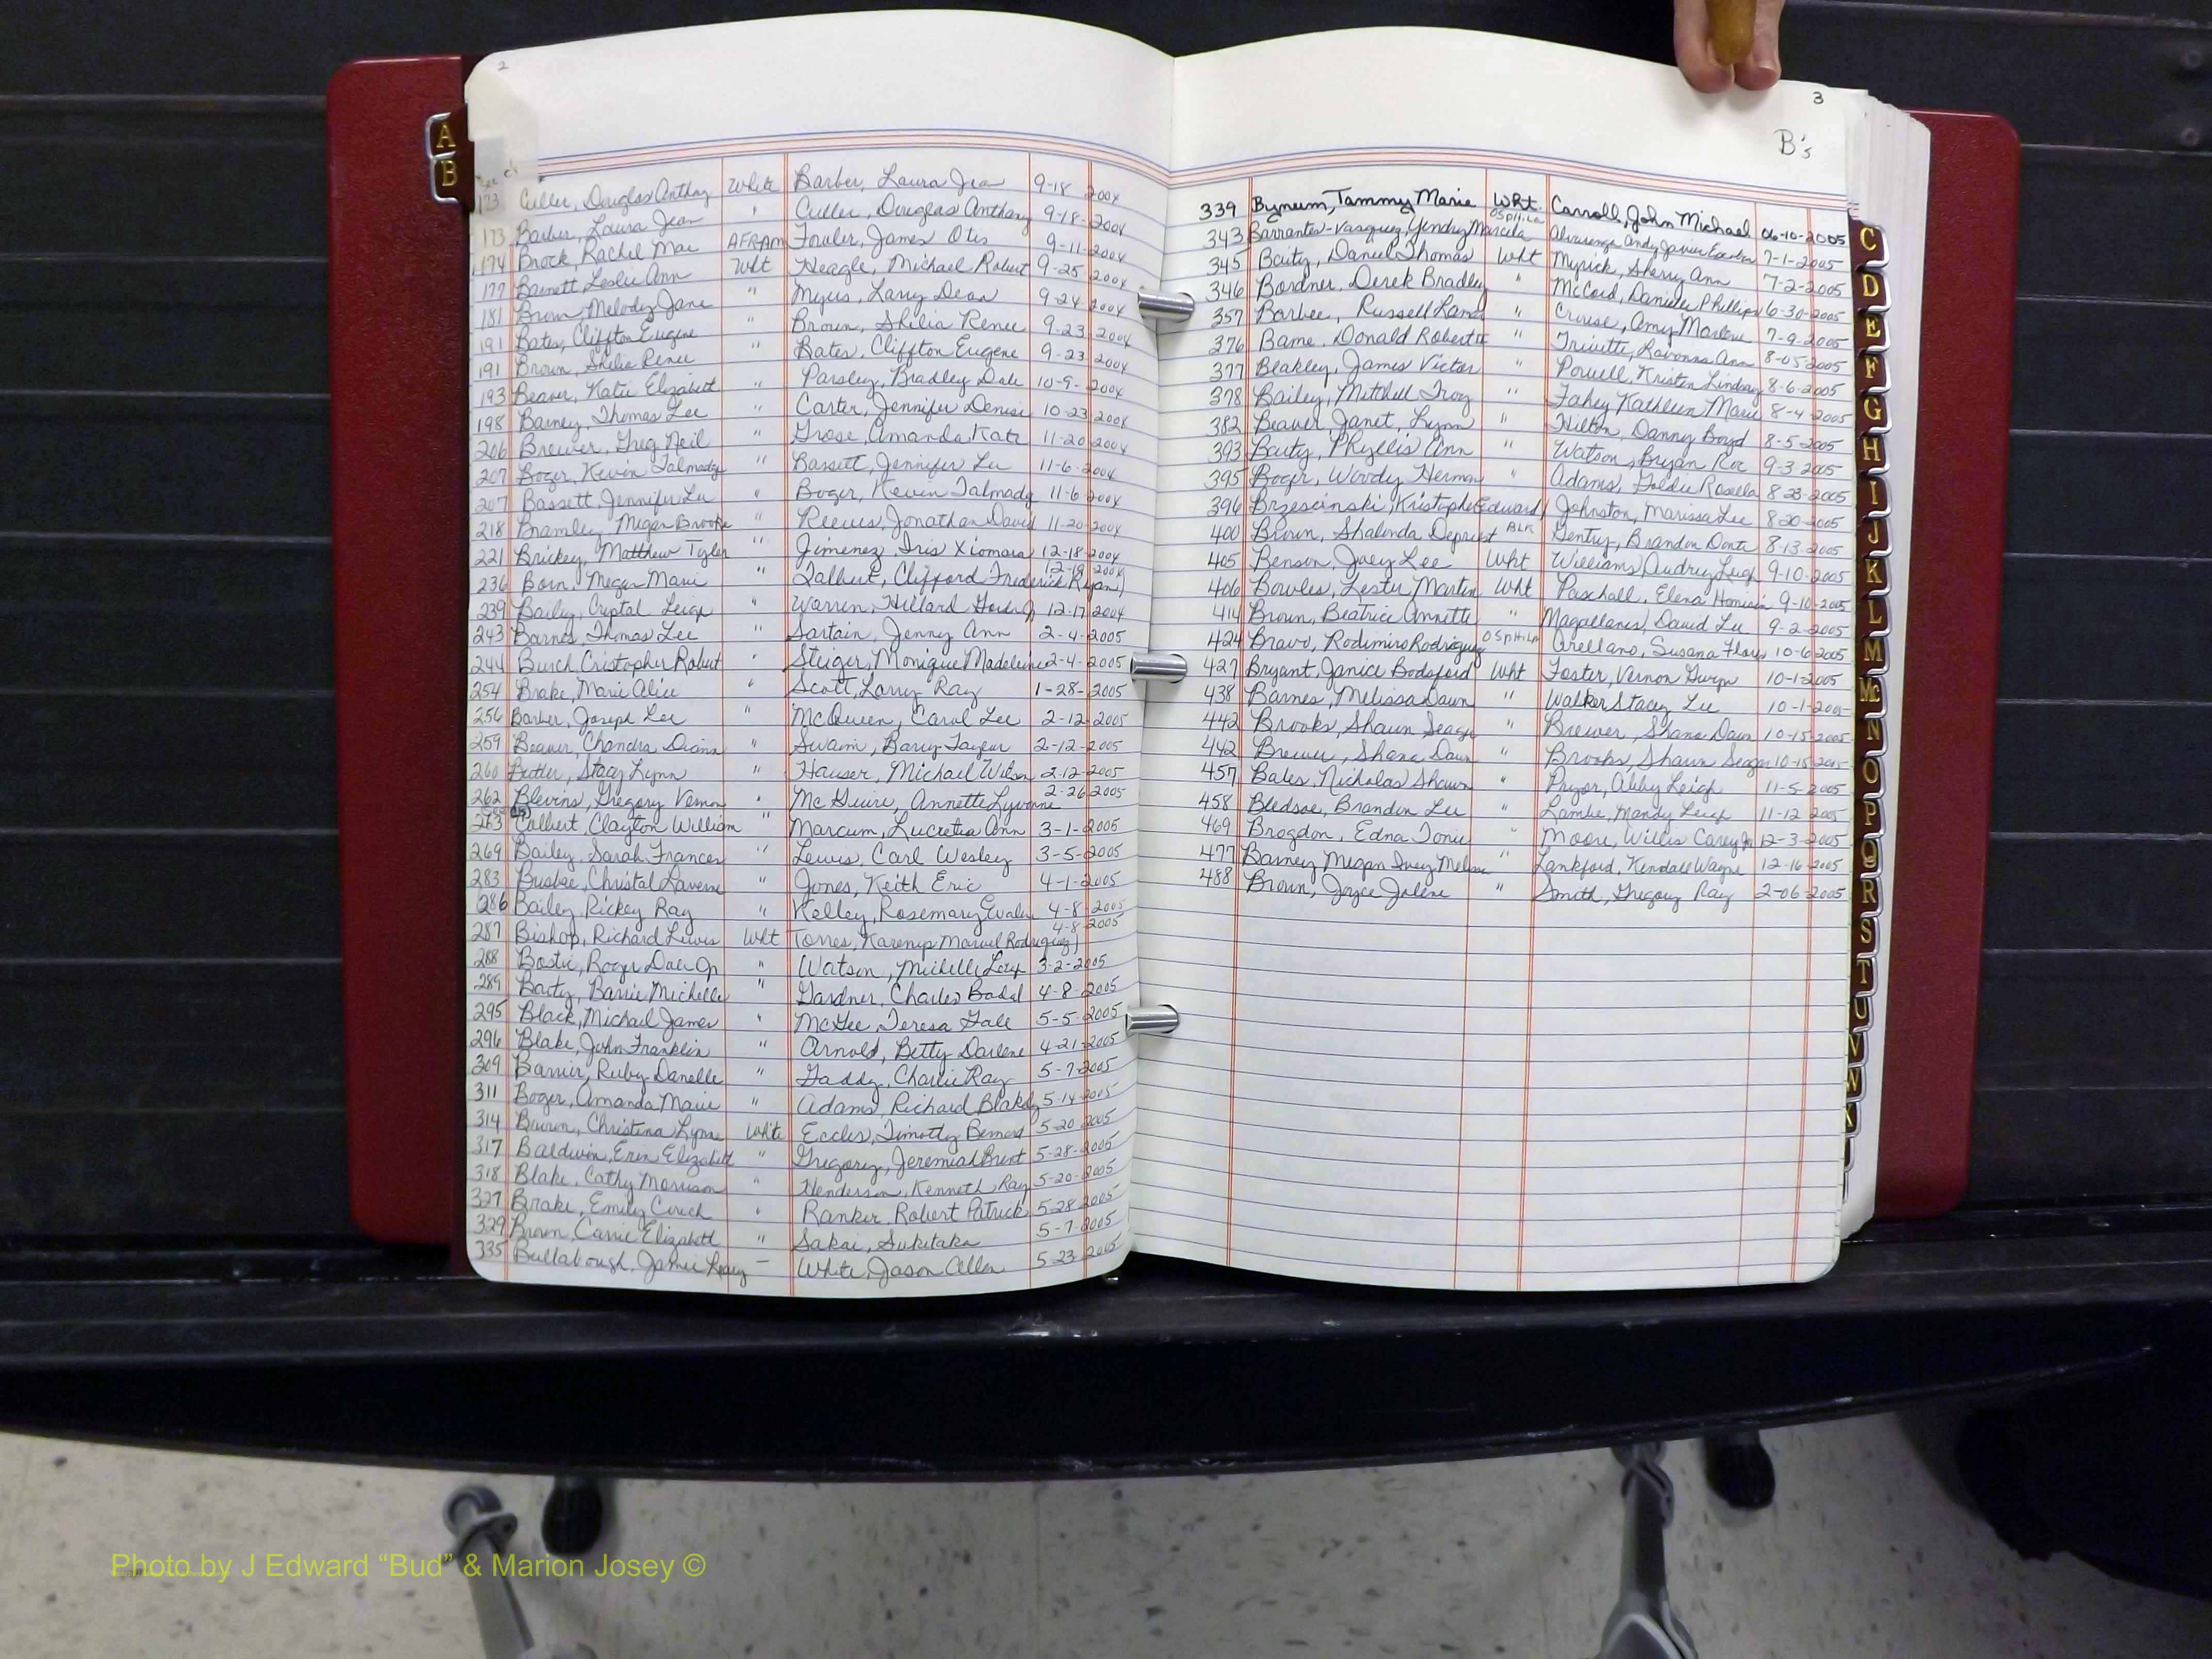 2
A
B
173 Culler, Douglas Anthony White Barber, Laura Jean 9-18 2004
173 Barber, Laura Jean " Culler, Douglas Anthony 9-18-2004
174 Brock, Rachel Mae AFRAM Fowler, James Otis 9-11-2004
177 Barnett, Leslie Ann Wht Heagle, Michael Robert 9-25 2004
181 Brown, Melody Jane " Myers, Larry Dean 9-24 2004
191 Bates, Cliffton Eugene " Brown, Shilia Renee 9-23 2004
191 Brown, Shilia Renee " Bates, Cliffton Eugene 9-23 2004
193 Beaver, Katie Elizabeth " Parsley, Bradley Dale 10-9-2004
198 Barney, Thomas Lee " Carter, Jennifer Denise 10-23 2004
206 Brewer, Greg Neil " Grose, Amanda Kate 11-20 2004
207 Boger, Kevin Talmadge " Bassett, Jennifer Lee 11-6-2004
207 Bassett, Jennifer Lee " Boger, Kevin Talmadg 11-6 2004
218 Bramley, Megan Brooke " Reeves, Jonathan David 11-20-2004
221 Brickey, Matthew Tyler " Jimenez, Iris Xiomara 12-18-2004
236 Born, Megan Marie " Talbert, Clifford Frederick Ryan) 12-19 2004
239 Bailey, Crystal Leigh " Warren, Hillard 12-17 2004
243 Barnes, Thomas Lee " Sartain, Jenny Ann 2-4-2005
244 Burch, Cristopher Robert " Steiger, Monique Madeleine 2-4-2005
254 Brake, Marie Alice " Scott, Larry Ray 1-28-2005
256 Barber, Joseph Lee " McQueen, Carol Lee 2-12-2005
259 Beaver, Chandra Diann " Swaim, Barry Tayeur 2-12-2005
260 Butler, Stacy Lynn " Hauser, Michael Wilson 2-12-2005
262 Blevins, Gregory Vernon " McGuire, Annette Lyvonne 2-26 2005
263 Calbert, Clayton William " Marcum, Lucretia Ann 3-1-2005
269 Bailey, Sarah Frances " Lewis, Carl Wesley 3-5-2005
283 Busbee, Christal Laverne " Jones, Keith Eric 4-1-2005
286 Bailey, Rickey Ray " Kelley, Rosemary Evalen 4-8-2005
287 Bishop, Richard Lewis Wht Torres, Marivel Rodriguez) 4-8 2005
288 Bostic, Roger Dale Jr " Watson, Michelle 3-2-2005
289 Baity, Barrie Michelle " Gardner, Charles 4-8-2005
295 Black, Michael James " McGee, Teresa Gale 5-5-2005
296 Blake, John Franklin " Arnold, Betty Darlene 4-21-2005
309 Barrier, Ruby Danelle " Gaddy, Charlie Ray 5-7-2005
311 Boger, Amanda Marie " Adams, Richard Blake 5-14-2005
314 Brown, Christina Lynne White Eccles, Timothy Bernard 5-20 2005
317 Baldwin, Erin Elizabeth " Gregory, Jeremiah Brent 5-28-2005
318 Blake, Cathy Morrison " Henderson, Kenneth Ray 5-20-2005
327 Brake, Emily Couch " Ranker, Robert Patrick 5-28 2005
329 Brown, Carrie Elizabeth " Sakai, Sukitaka 5-7-2005
335 Bullabough, Jamie — White, Jason Allen 5-23-2005
3
B's
339 Bynum, Tammy Marie Wht. Carroll, John Michael 06-10-2005
343 Barrantes-Vasquez, Yendry Marcela Alvarenga Andy Javier 7-1-2005
345 Baity, Daniel Thomas Wht Myrick, Sherry Ann 7-2-2005
346 Bordner, Derek Bradley " McCoid, Danielle Phillips 6-30-2005
357 Barbee, Russell " Cruise, Amy Marlene 7-9-2005
376 Bame, Donald Robert " Trivette, Lavonna Ann 8-05-2005
377 Beakley, James Victor " Powell, Kristen Lindsay 8-6-2005
378 Bailey, Mitchell Troy " Fahey Kathleen Marie 8-4-2005
382 Beaver, Janet Lynn " Hilton, Danny Boyd 8-5-2005
393 Baity, Phyllis Ann " Watson, Bryan Roe 9-3 2005
395 Boger, Woody Herman " Adams, Goldie Rosella 8 23-2005
396 Brzescinski, Kristopher Edward Johnston, Marissa Lee 8-20-2005
400 Brown, Shalonda Depriest BLK Gentry, Brandon Donte 8-13-2005
405 Benson, Joey Lee Wht Williams, Audrey Leigh 9-10-2005
406 Bowles, Lester Martin Wht Paschall, Elena 9-10-2005
414 Brown, Beatrice Annette " Magallanes, David Lee 9-2-2005
424 Bravo, Rodimiro Rodriguez Arellano, Susana Flores 10-6-2005
427 Bryant, Janice Bodsford Wht Foster, Vernon Gwyn 10-1-2005
438 Barnes, Melissa Dawn " Walker Stacey Lee 10-1-2005
442 Brooks, Shaun Seagr " Brewer, Shana Dawn 10-15-2005
442 Brewer, Shana Dawn " Brooks, Shaun Seagr 10-15-2005
457 Bates, Nicholas Shawn " Pryor, Abby Leigh 11-5-2005
458 Bledsoe, Brandon Lee " Lambe, Mandy Leigh 11-12 2005
469 Brogdon, Edna Tonie " Moore, Willis Carey Jr 12-3-2005
477 Barney Megan Ivey " Lankford, Kendall Wayne 12-16-2005
488 Brown, Joyce Jolene " Smith, Gregory Ray 2-06-2005
C
D
E
F
G
H
I
J
K
L
M
Mc
N
O
P
Q
R
S
T
U
V
W
Photo by J Edward “Bud” & Marion Josey ©